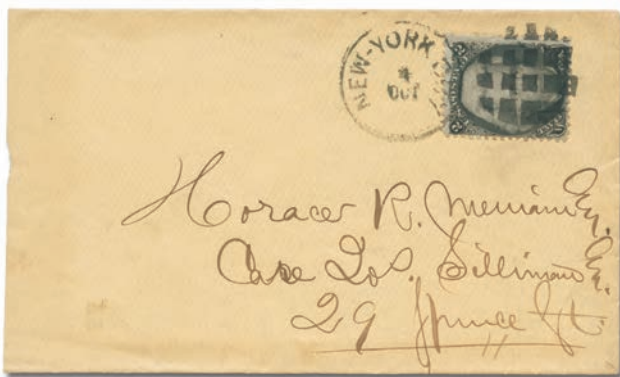 NEW-YORK
4
OCT
Horace R. Merriam Esq.
Care Jos. Silliman Esq.
29 Spruce St.